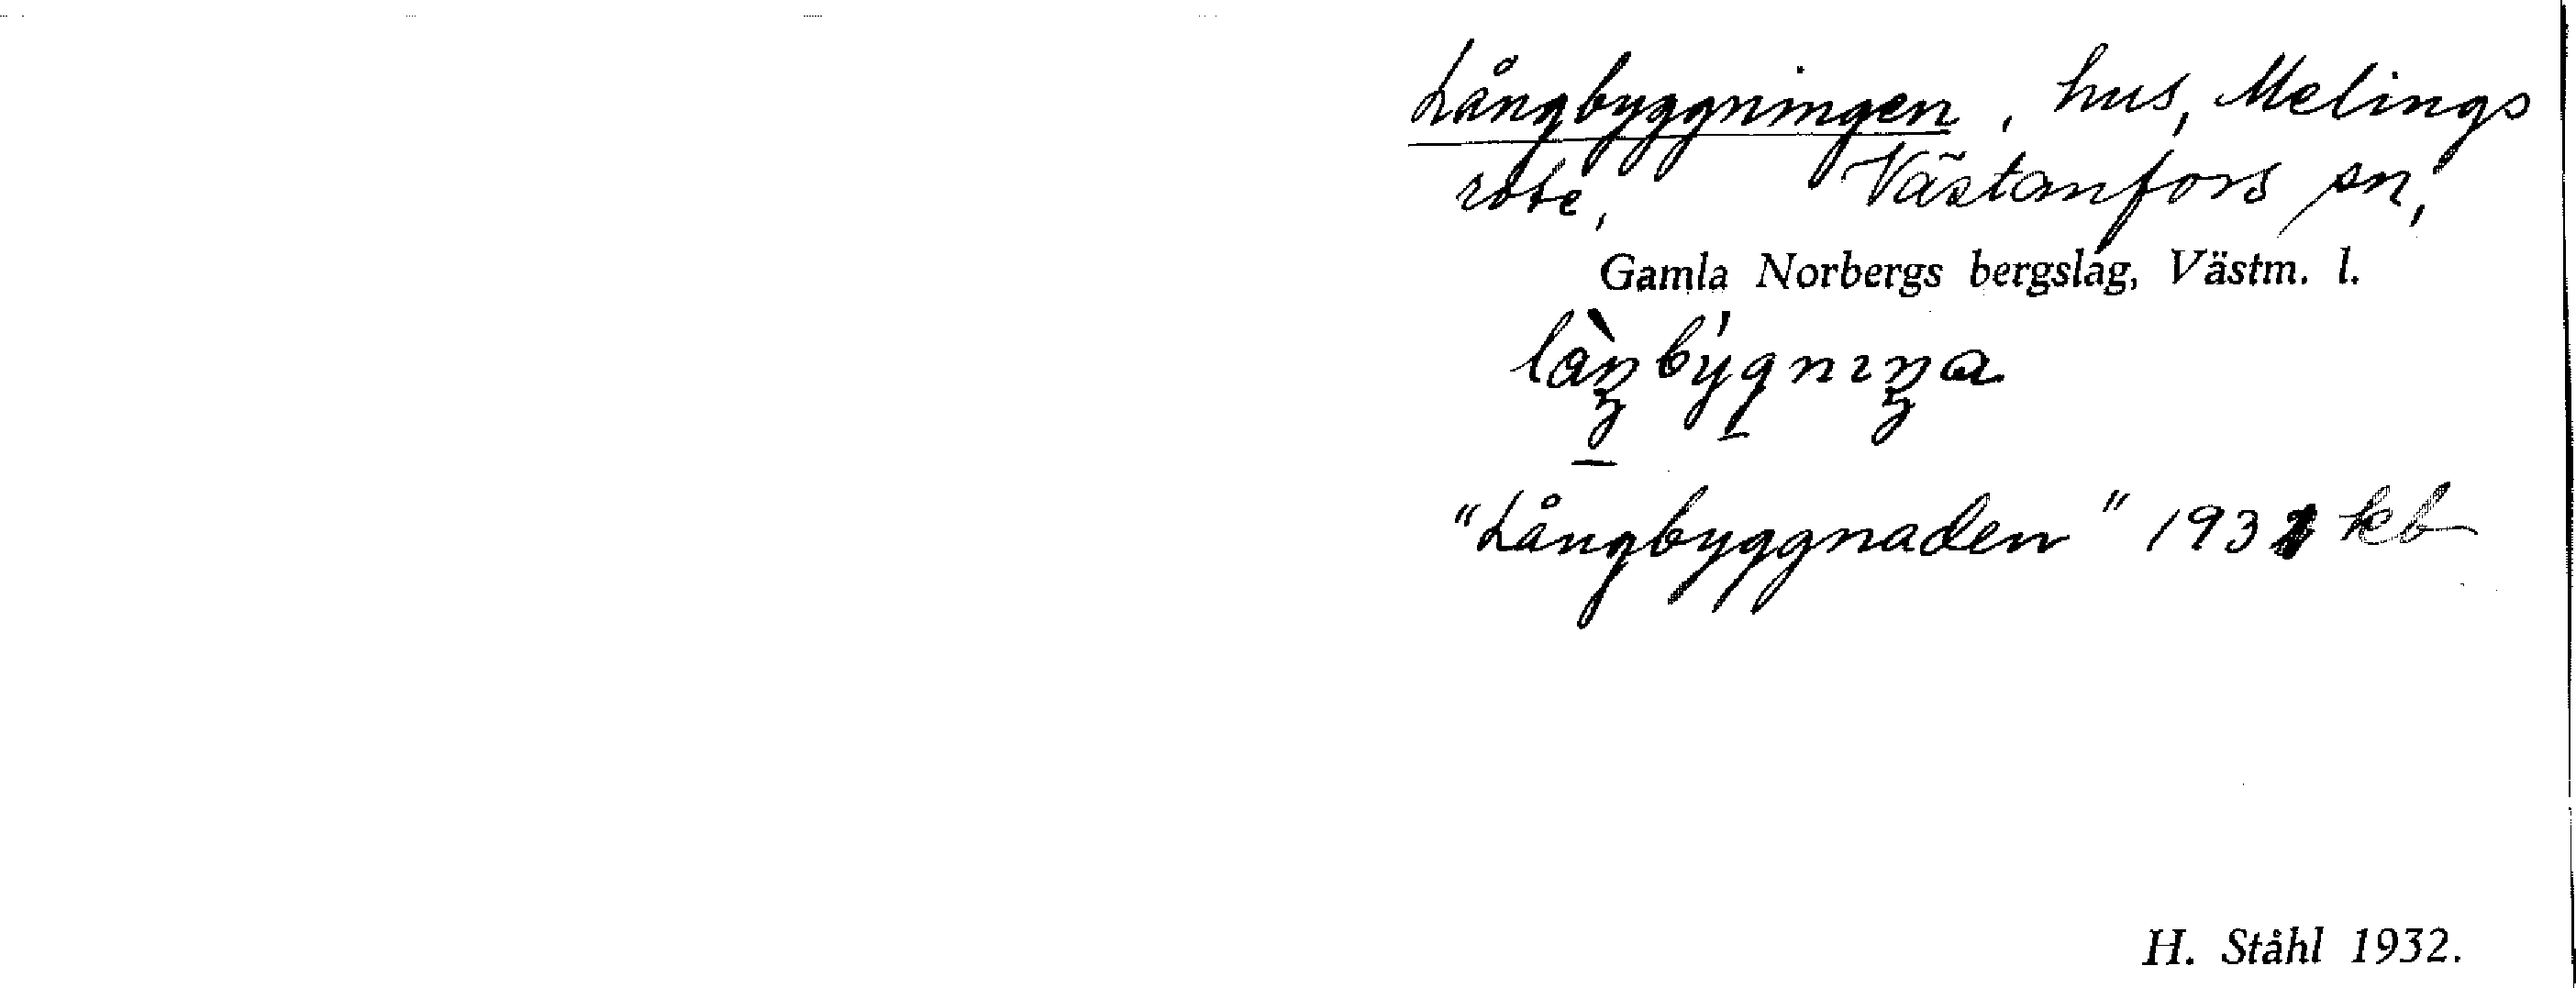 Långbyggningen, hus, Melings
rote, Västanfors sn,
Gamla Norbergs bergslag, Västm. l.
làŋbýgnıŋa
"Långbyggnaden" 1931 kb
H. Ståhl 1932.